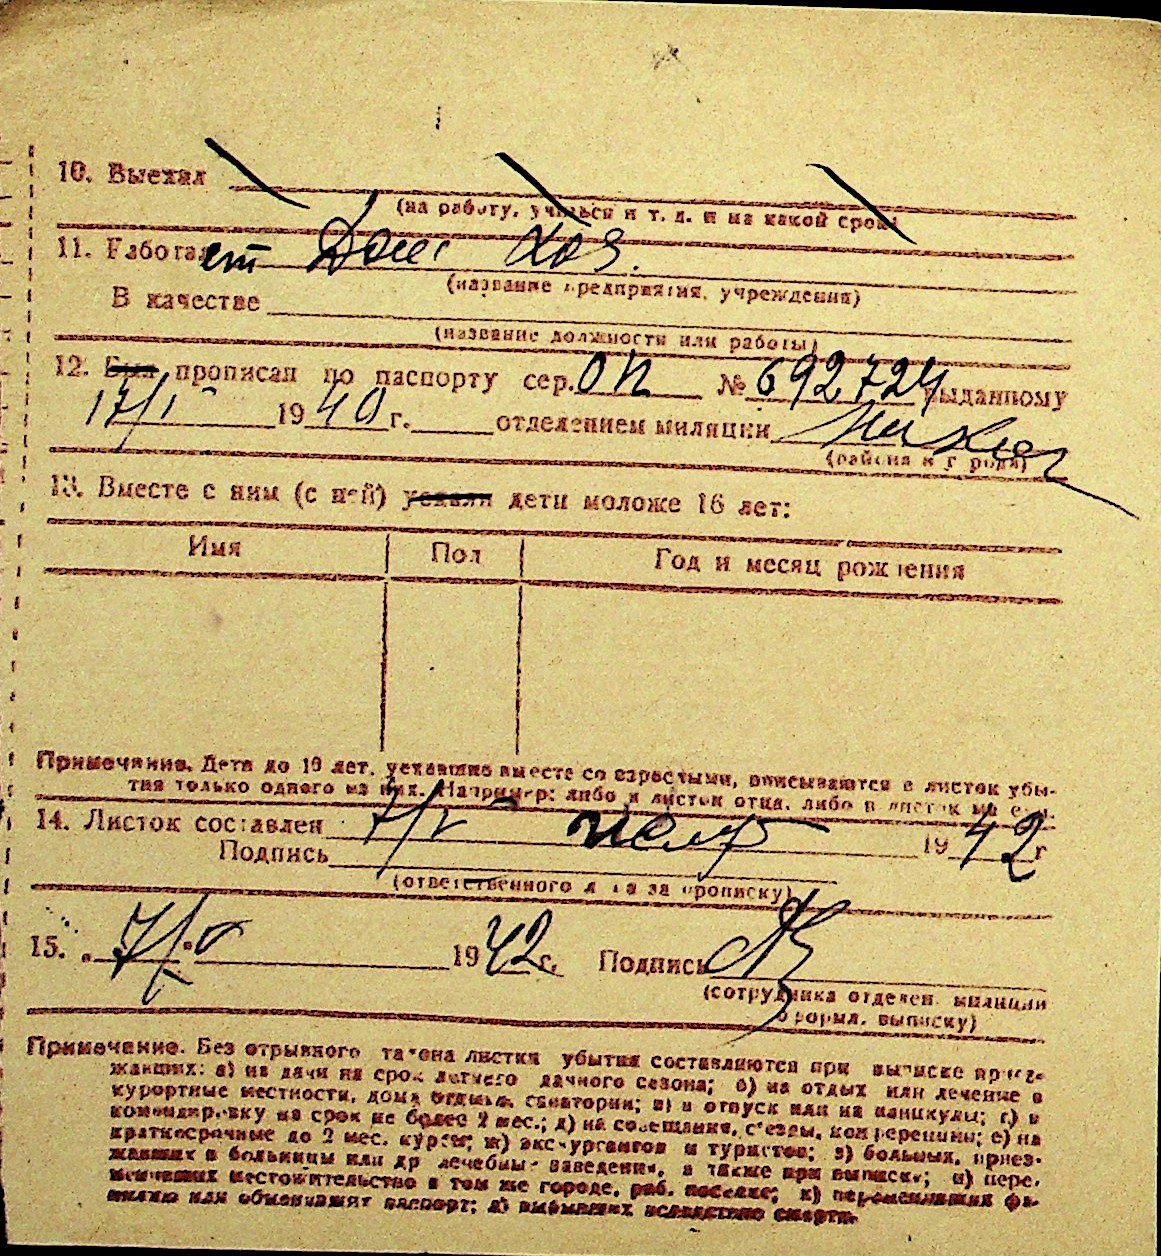 10. Выехал
(на работу, учиться и т. д. и на какой срок)
11. Работает Дом Хоз.
(название предприятия, учреждения)
В качестве
(название должности или работы)
12. Был прописан по паспорту сер. ОП № 692724 выданному
17/I 1940 г. отделением милиции
(района и города)
13. Вместе с ним (с ней) уехали дети моложе 16 лет:
Имя Пол Год и месяц рождения
Примечание. Дети до 16 лет, уехавшие вместе со взрослыми, вписываются в листок убы-
тия только одного из них. Например: либо в листок отца, либо в листок матери.
14. Листок составлен 7/V 1942 г
Подпись
(ответственного лица за прописку)
15. 7/V 1942 г. Подпись
(сотрудника отделен. милиции
оформл. выписку)
Примечание. Без отрывного талона листки убытия составляются при выписке приез-
жавших: а) на дачи на срок летнего дачного сезона; б) на отдых или лечение в
курортные местности, дома отдыха, санатории; в) в отпуск или на каникулы; г) в
командировку на срок не более 2 мес.; д) на совещания, съезды, конференции; е) на
краткосрочные до 2 мес. курсы; ж) экскурсантов и туристов; з) больных, приез-
жавших в больницы или др лечебные заведения, а также при выписке; и) пере-
менивших местожительство в том же городе, раб. поселке; к) переменивших фа-
милию или обменявших паспорт; л) выбывших вследствие смерти.